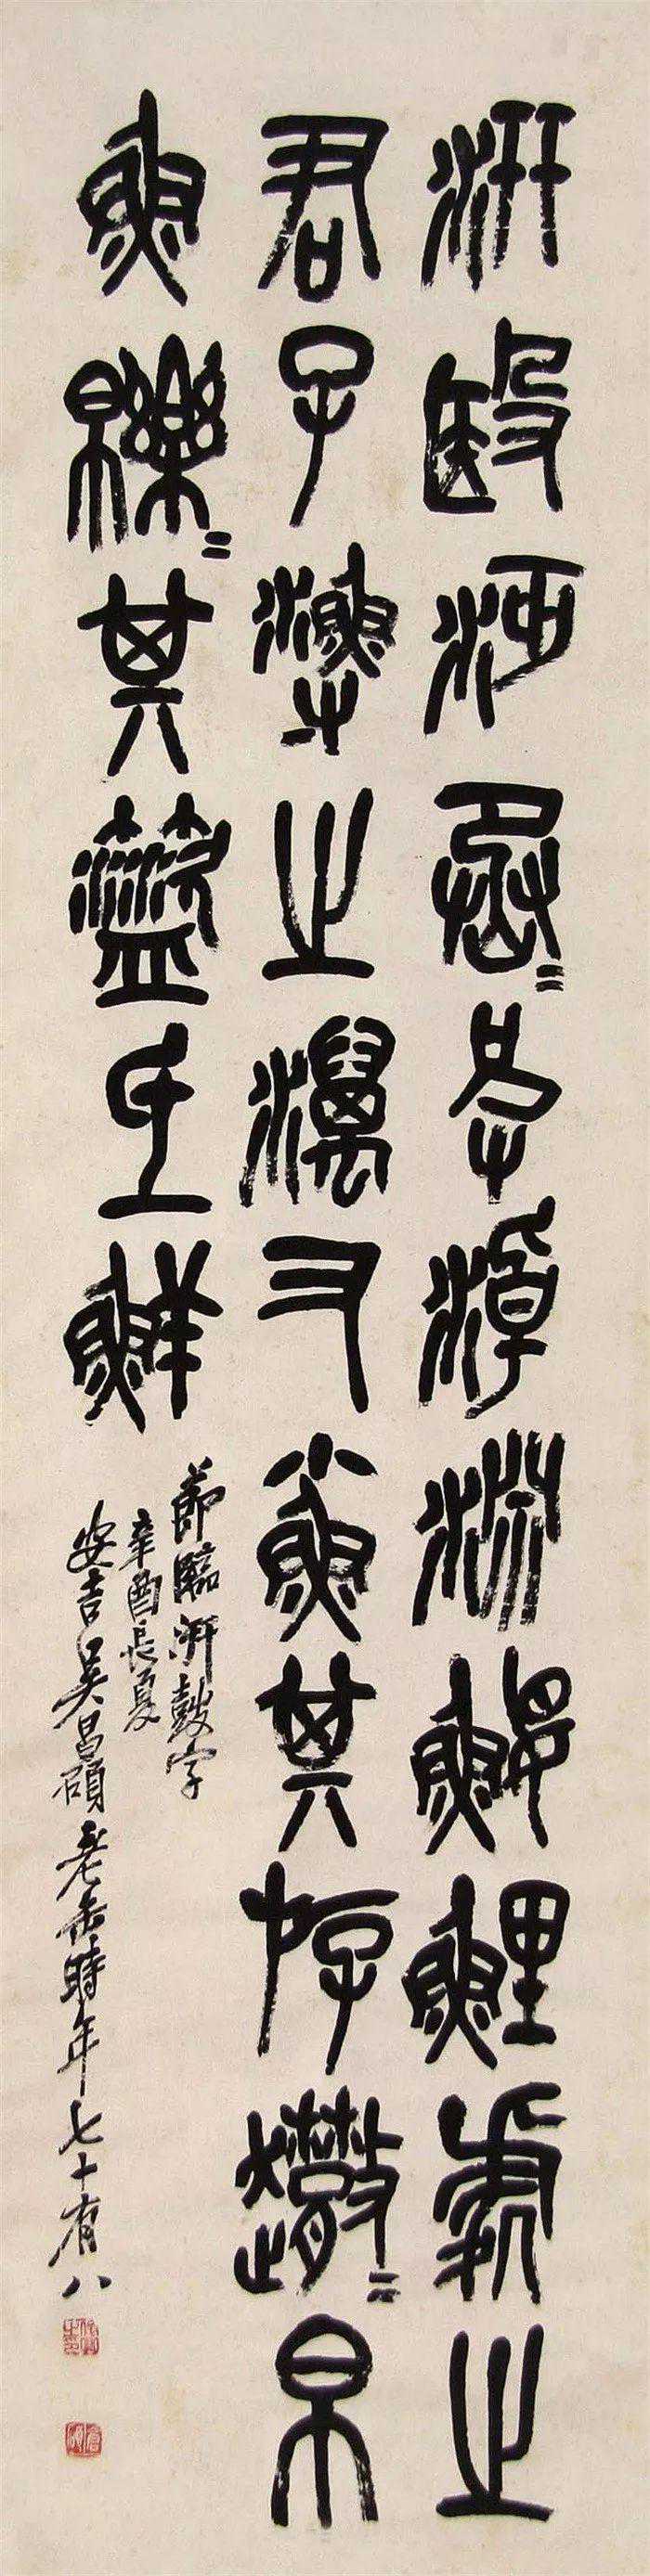 汧殹沔丞=皮淖淵鰋鯉處之
君子漁之澫又小魚其斿帛
魚皪=其盜氐鮮
節臨汧鼓字
辛酉長夏
安吉吳昌碩老缶時年七十有八